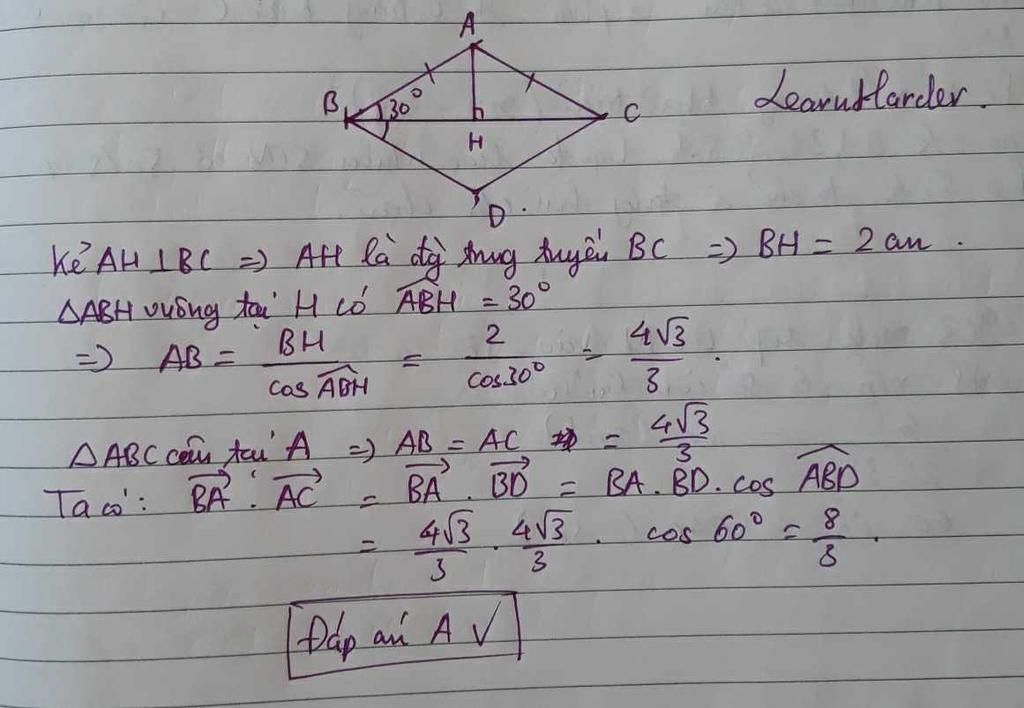 A
B 30° C LearnHarder.
H
D.
Kẻ AH ⊥ BC => AH là đg trung tuyến BC => BH = 2 an.
ΔABH vuông tại H có \widehat{ABH} = 30°
=> AB = \frac{BH}{cos \widehat{ABH}} = \frac{2}{cos30°} = \frac{4√3}{3}.
ΔABC cân tại A => AB = AC = \frac{4√3}{3}
Ta có: \overrightarrow{BA} . \overrightarrow{AC} = \overrightarrow{BA} . \overrightarrow{BD} = BA . BD . cos \widehat{ABD}
= \frac{4√3}{3} . \frac{4√3}{3} . cos 60° = \frac{8}{3}.
Đáp án A √